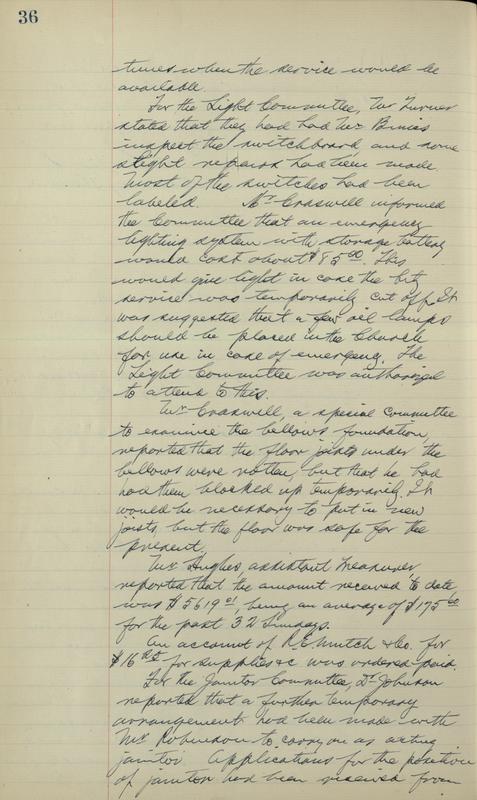 36
times when the service would be
available.
For the Light Committee, Mr Turner
stated that they had had Mr Binns
inspect the switchboard, and some
slight repairs had been made.
Most of the switches had been
labeled. Mr. Craswell informed
the Committee that an emergency
lighting system with storage battery
would cost about $85.00. This
would give light in case the City
service was temporarily cut off. It
was suggested that a few oil lamps
should be placed in the Church
for use in case of emergency. The
Light Committee was authorized
to attend to this.
Mr Craswell, a special committee
to examine the bellows foundation,
reported that the floor joists under the
bellows were rotten, but that he had
had them blocked up temporarily. It
would be necessary to put in new
joists, but the floor was safe for the
present.
Mr Hughes, assistant Treasurer
reported that the amount received to date
was $5619.01, being an average of $175.00
for the past 32 Sundays.
An account of R.E. Mutch & Co. for
$16 for supplies &c was ordered paid.
For the Janitor Committee, Dr Johnson
reported that a further temporary
arrangement had been made with
Mr Robinson to carry on as acting
janitor. Applications for the position
of janitor had been received from